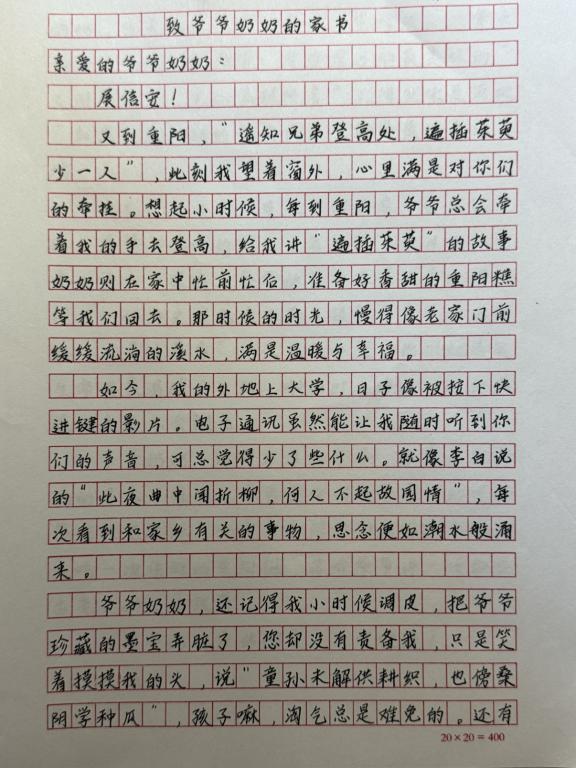 致爷爷奶奶的家书
亲爱的爷爷奶奶：
展信安！
又到重阳，“遥知兄弟登高处，遍插茱萸
少一人”，此刻我望着窗外，心里满是对你们
的牵挂。想起小时候，每到重阳，爷爷总会牵
着我的手去登高，给我讲“遍插茱萸”的故事
奶奶则在家中忙前忙后，准备好香甜的重阳糕
等我们回去。那时候的时光，慢得像老家门前
缓缓流淌的溪水，满是温暖与幸福。
如今，我的外地上大学，日子像被按下快
进键的影片。电子通讯虽然能让我随时听到你
们的声音，可总觉得少了些什么。就像李白说
的“此夜曲中闻折柳，何人不起故园情”，每
次看到和家乡有关的事物，思念便如潮水般涌
来。
爷爷奶奶，还记得我小时候调皮，把爷爷
珍藏的墨宝弄脏了，您却没有责备我，只是笑
着摸摸我的头，说“童孙未解供耕织，也傍桑
阴学种瓜”，孩子嘛，淘气总是难免的。还有
20×20=400